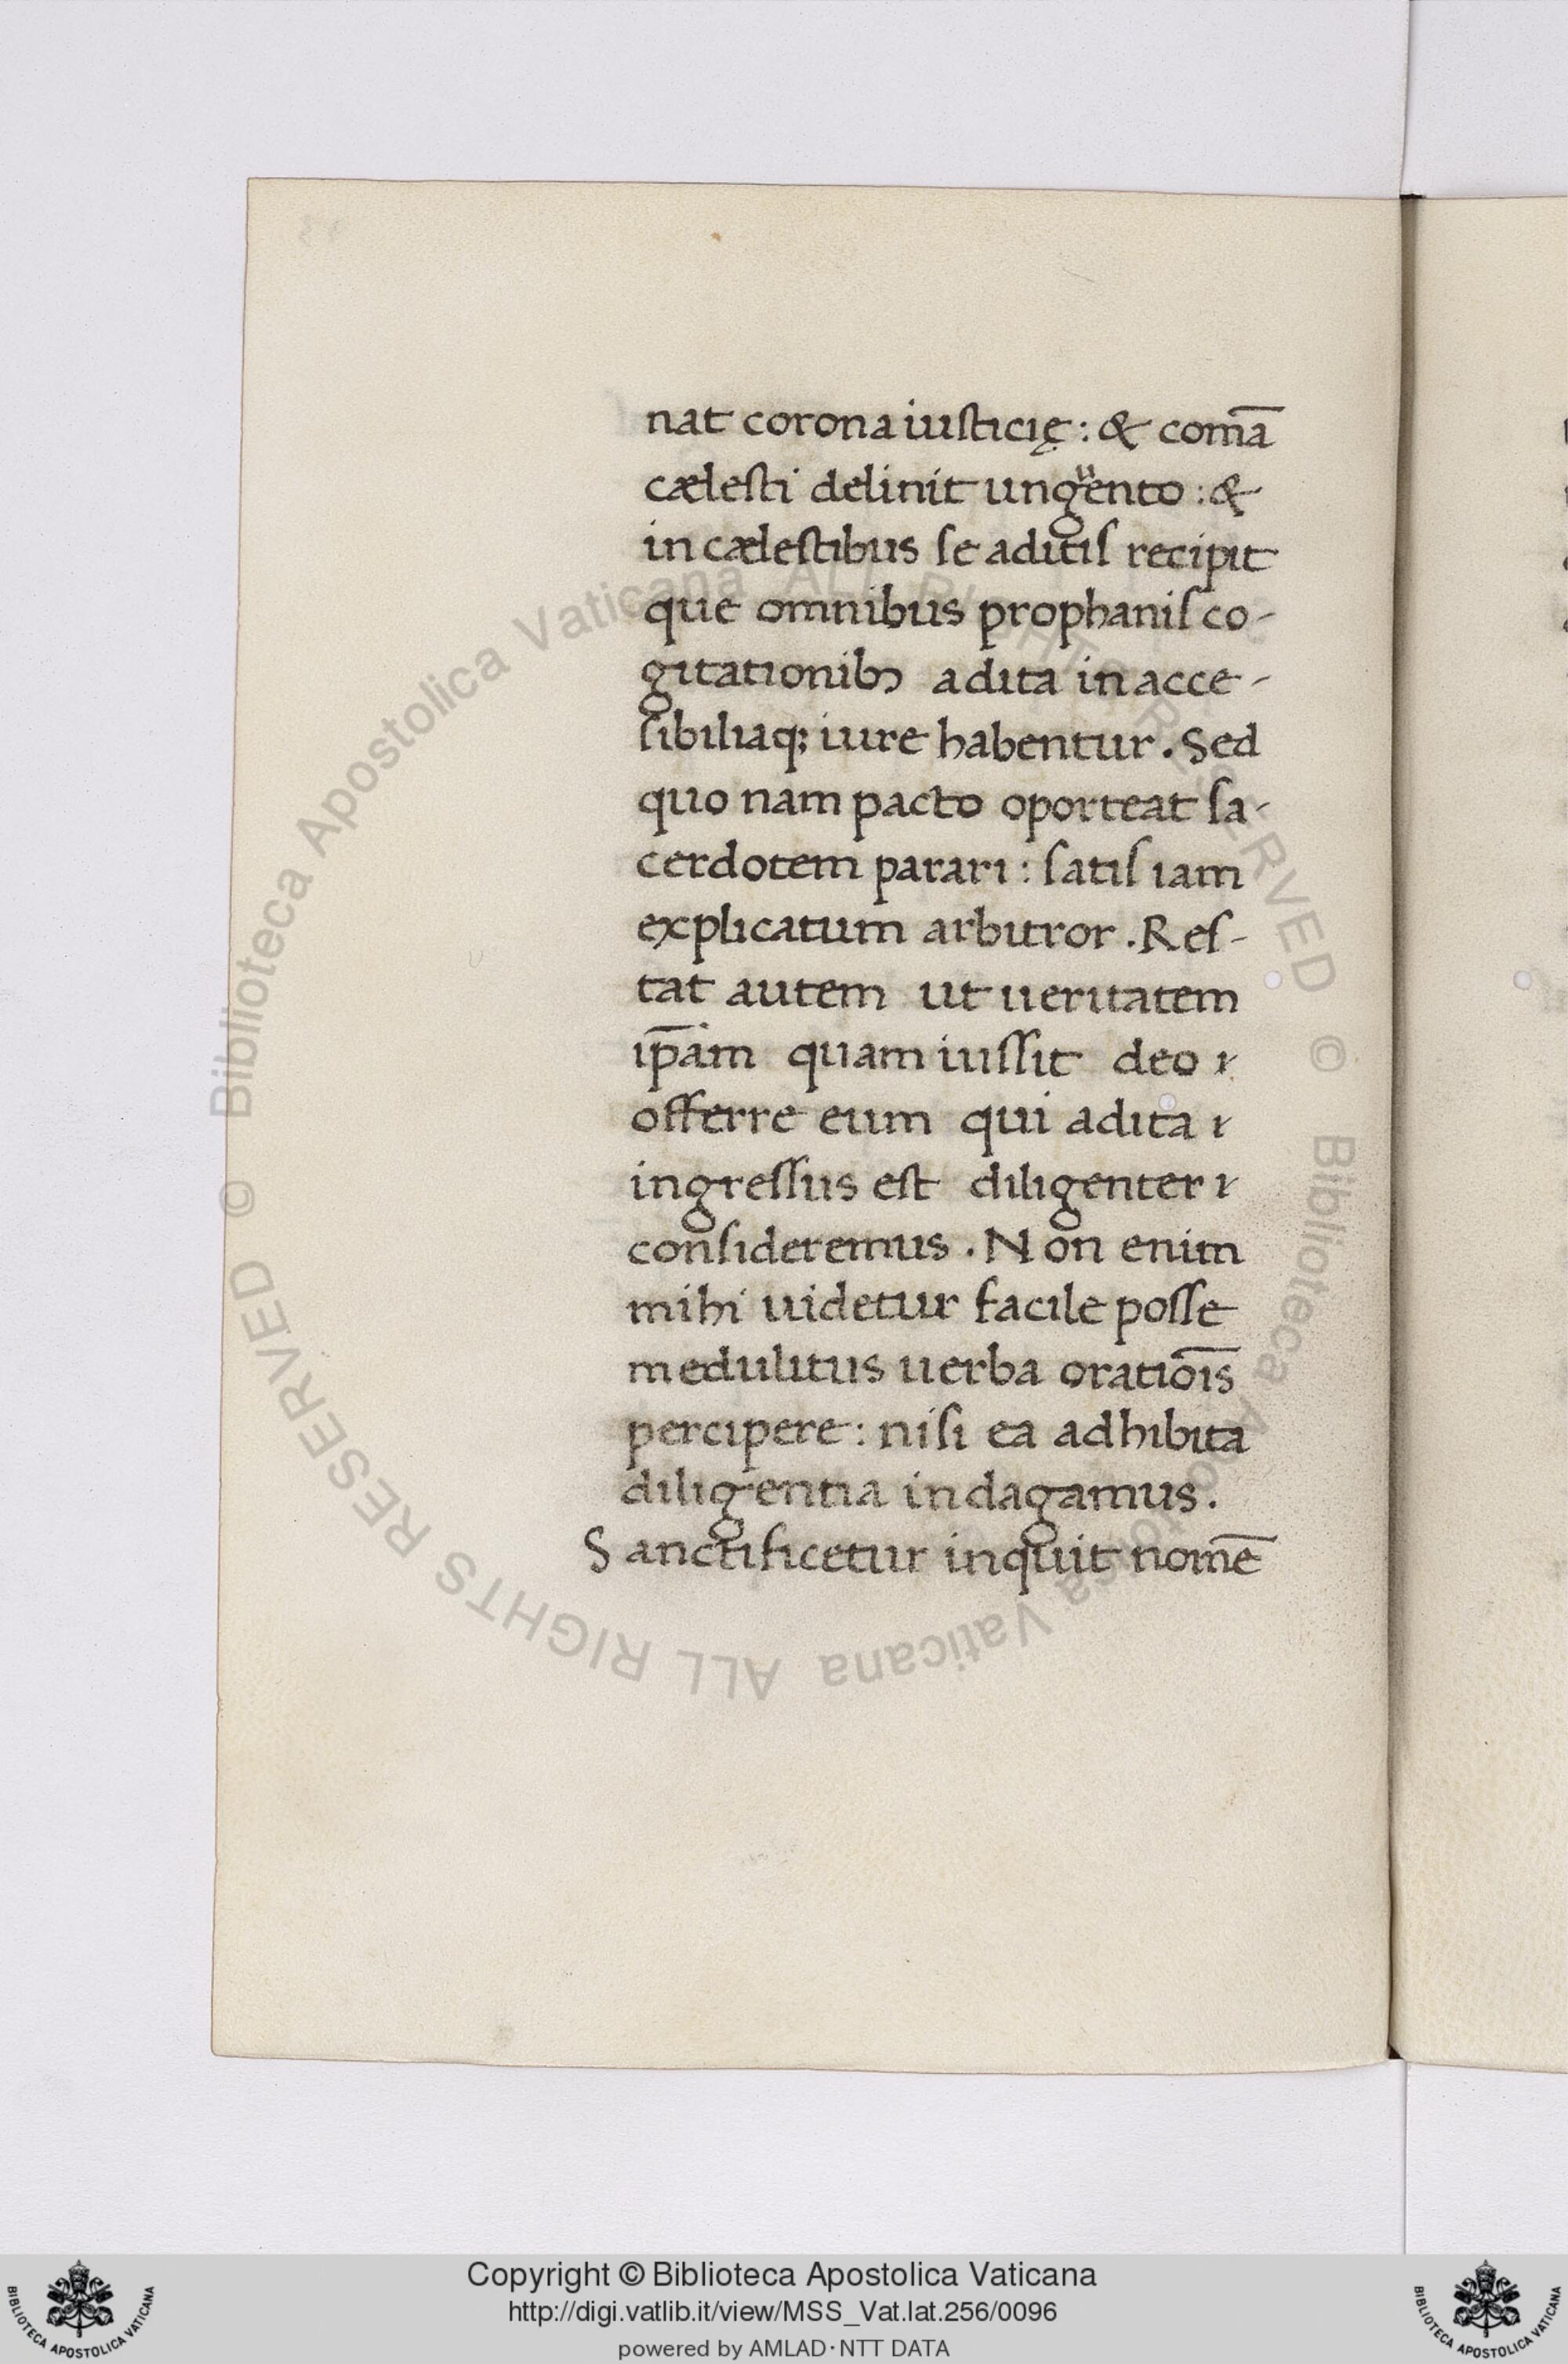 nat corona iusticię : & comā
cælesti delinit unguento : &
in cælestibus se aditis recipit
que omnibus prophanis co-
gitationibꝫ adita in acce-
sibiliaqꝫ iure habentur. Sed
quo nam pacto oporteat sa-
cerdotem parari : satis iam
explicatum arbitror. Res-
tat autem ut ueritatem
ip̄am quam iussit deo
offerre eum qui adita
ingressus est diligenter
consideremus. Non enim
mihi uidetur facile posse
medulitus uerba oratiōis
percipere : nisi ea adhibita
diligentia indagamus.
Sanctificetur inquit nomē
© Biblioteca Apostolica Vaticana ALL RIGHTS RESERVED © Biblioteca Apostolica Vaticana ALL RIGHTS RESERVED
BIBLIOTECA APOSTOLICA VATICANA
Copyright © Biblioteca Apostolica Vaticana
http://digi.vatlib.it/view/MSS_Vat.lat.256/0096
powered by AMLAD·NTT DATA
BIBLIOTECA APOSTOLICA VATICANA